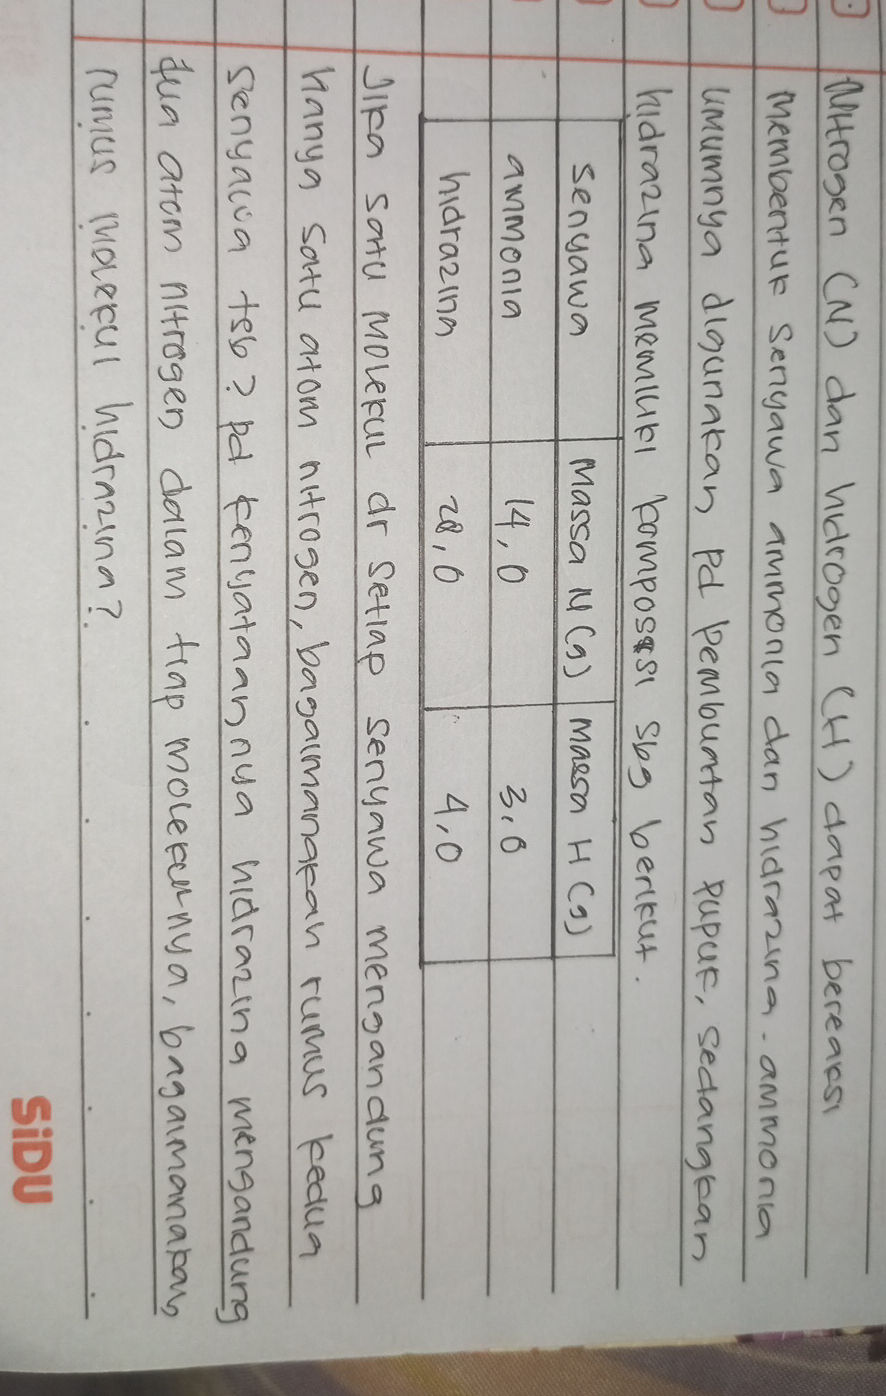 Nitrogen (N) dan hidrogen (H) dapat bereaksi
membentuk senyawa ammonia dan hidrazina. ammonia
umumnya digunakan pd pembuatan pupuk, sedangkan
hidrazina memiliki komposisi sbg berikut.
senyawa Massa N (g) Massa H (g)
ammonia 14,0 3,0
hidrazina 28,0 4,0
Jika satu molekul dr setiap senyawa mengandung
hanya satu atom nitrogen, bagaimanakah rumus kedua
senyawa tsb? pd kenyataannya hidrazina mengandung
dua atom nitrogen dalam tiap molekulnya, bagaimanakah
rumus molekul hidrazina?
SiDU